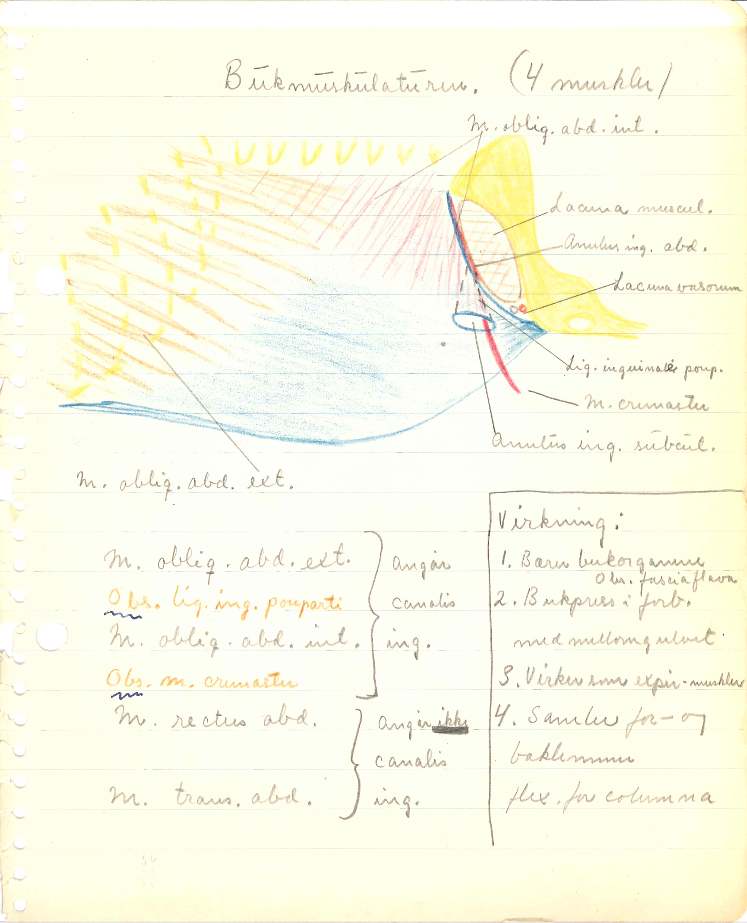 Bukmuskulaturen. (4 muskler)
M. obliq. abd. int.
Lacuna muscul.
Anulus ing. abd.
Lacuna vasorum
Lig. inguinale poup.
M. cremaster
Anulus ing. subcut.
M. obliq. abd. ext.
M. obliq. abd. ext.
Obs. lig. ing. pouparti
M. obliq. abd. int.
Obs. m. cremaster
angår
canalis
ing.
M. rectus abd.
M. trans. abd.
angår ikke
canalis
ing.
Virkning:
1. Bærer bukorganene
Obs. fascia flava
2. Bukpress i forb.
med mellomgulvet.
3. Virker som expir-muskler
4. Samler for- og
baklemmer
flex. for columna